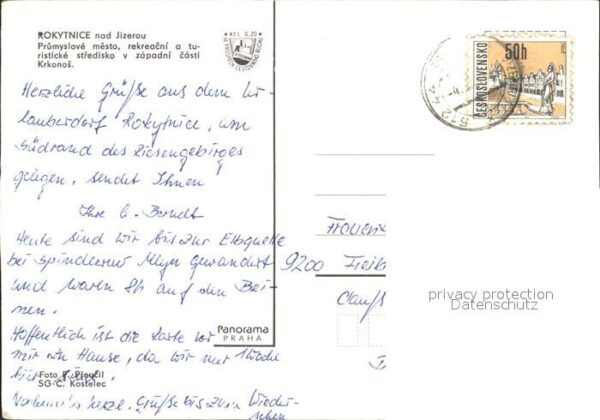 ROKYTNICE nad Jizerou
Průmyslové město, rekreační a tu-
ristické středisko v západní části
Krkonoš.
Kčs 0,20
Herzliche Grüße aus dem Ur-
lauberdorf Rokytnice, am
Südrand des Riesengebirges
gelegen, sendet Ihnen
Ihre C. Berndt
Heute sind wir bis zur Elbquelle
bei Spindleruv Mlyn gewandert
und waren 8h auf den Bei-
nen.
Hoffentlich ist die Karte vor
mir zu Hause, da wir nur 1 Woche
hier sind.
herzl. Grüße bis zum Wieder-
sehen
Foto F. Ploučil
SG-Č. Kostelec
Panorama
PRAHA
ČESKOSLOVENSKO
50h
512 44
9200 Freib
privacy protection
Datenschutz